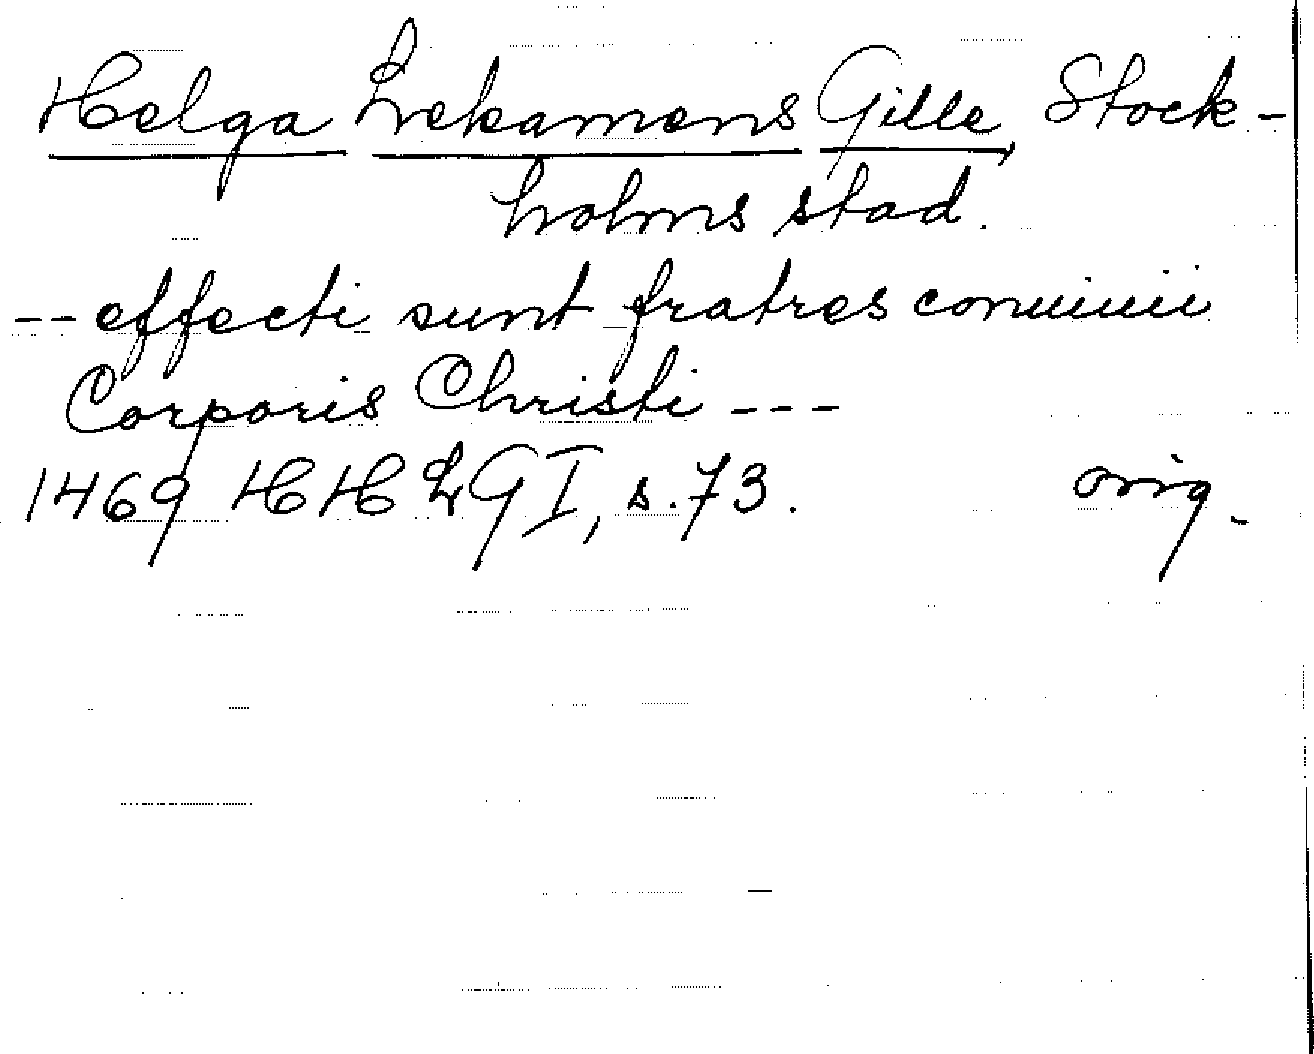 Helga Lekamens Gille, Stock-
holms stad.
-- effecti sunt fratres conuiuii
Corporis Christi ---
1469 HHLG I, s. 73. orig.